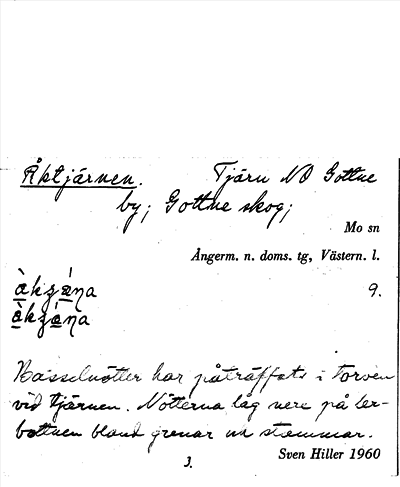 Åktjärnen. Tjärn NO Gottne
by; Gottne skog;
Mo sn
Ångerm. n. doms. tg, Västern. l.
9.
Hasselnötter har påträffats i torven
vid tjärnen. Nötterna låg nere på ler-
bottnen bland grenar och stammar.
3.
Sven Hiller 1960